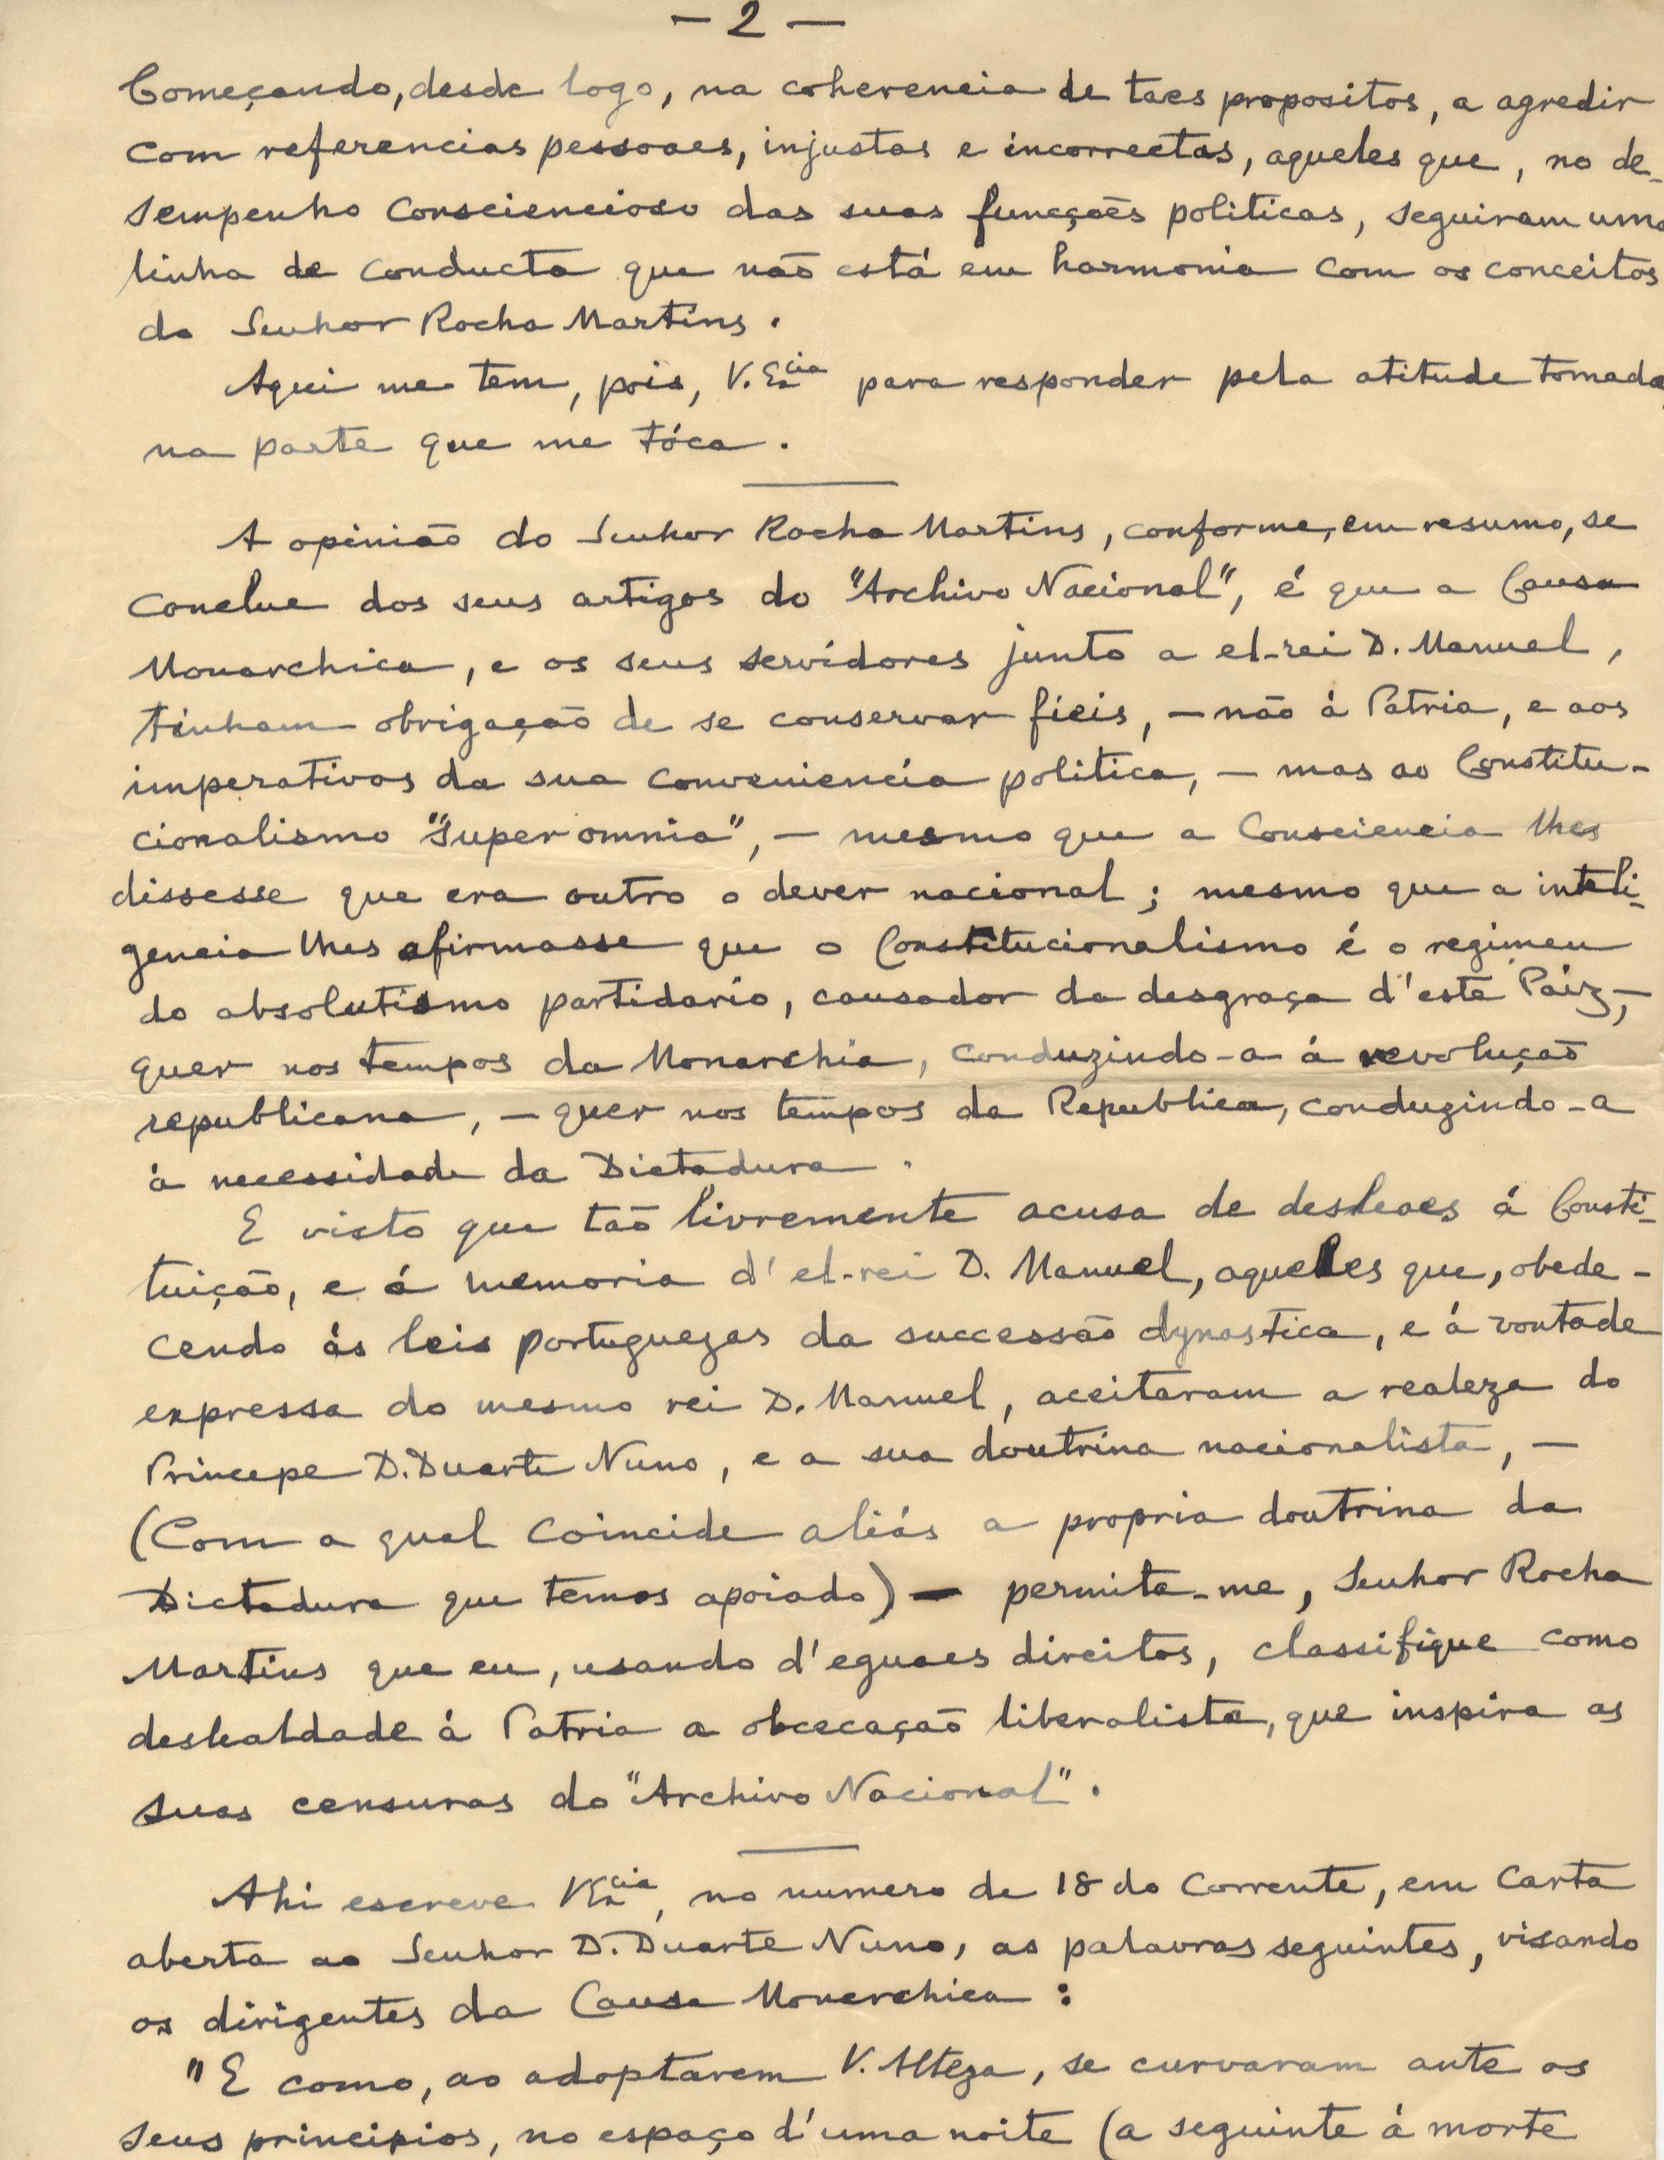 — 2 —
Começando, desde logo, na coherencia de taes propositos, a agredir
com referencias pessoaes, injustas e incorrectas, aqueles que, no de-
sempenho consciencioso das suas funcções politicas, seguiram uma
linha de conducta que não está em harmonia com os conceitos
do Senhor Rocha Martins.
Aqui me tem, pois, V. Ex.cia para responder pela atitude tomada,
na parte que me tóca.
A opinião do Senhor Rocha Martins, conforme, em resumo, se
conclue dos seus artigos do "Archivo Nacional", é que a Causa
Monarchica, e os seus servidores junto a el-rei D. Manuel,
tinham obrigação de se conservar fieis, — não á Patria, e aos
imperativos da sua conveniencia politica, — mas ao Constitu-
cionalismo "Super omnia", — mesmo que a Consciencia lhes
dissesse que era outro o dever nacional; mesmo que a inteli-
gencia lhes afirmasse que o Constitucionalismo é o regimen
do absolutismo partidario, causador da desgraça d'este Paiz, —
quer nos tempos da Monarchia, conduzindo-a á revolução
republicana, — quer nos tempos da Republica, conduzindo-a
á necessidade da Dictadura.
E visto que tão livremente acusa de desleaes á Consti-
tuição, e á memoria d'el-rei D. Manuel, aqueles que, obede-
cendo ás leis portuguezas da successão dynastica, e á vontade
expressa do mesmo rei D. Manuel, aceitaram a realeza do
Principe D. Duarte Nuno, e a sua doutrina nacionalista, —
(Com a qual coincide aliás a propria doutrina da
Dictadura que temos apoiado) — permita-me, Senhor Rocha
Martins que eu, usando d'eguaes direitos, classifique como
deslealdade á Patria a obcecação liberalista, que inspira as
suas censuras do "Archivo Nacional".
Ahi escreve V. Ex.cia, no numero de 18 do corrente, em Carta
aberta ao Senhor D. Duarte Nuno, as palavras seguintes, visando
os dirigentes da Causa Monarchica:
"E como, ao adoptarem V. Alteza, se curvaram ante os
seus principios, no espaço d'uma noite (a seguinte á morte